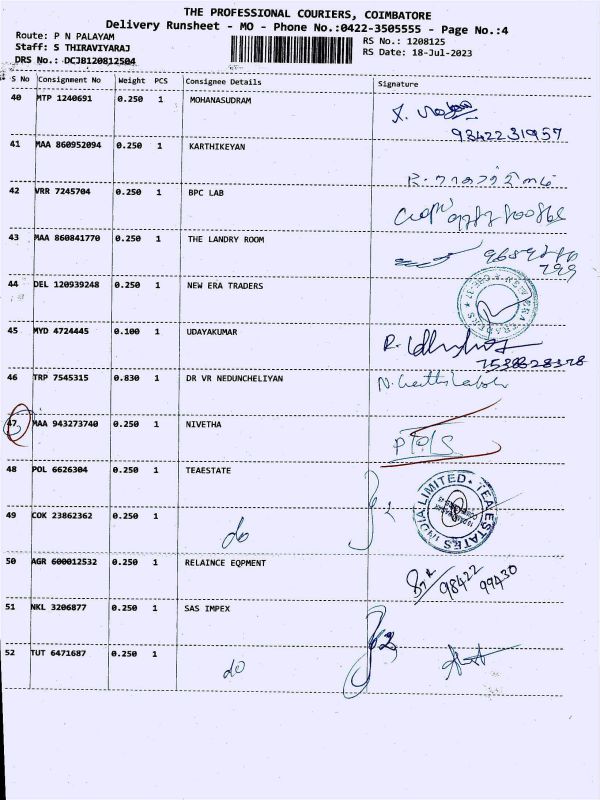 THE PROFESSIONAL COURIERS, COIMBATORE
Delivery Runsheet - MO - Phone No.:0422-3505555 - Page No.:4
Route: P N PALAYAM
RS No.: 1208125
Staff: S THIRAVIYARAJ
RS Date: 18-Jul-2023
DRS No.: DCJB120812504
S No Consignment No Weight PCS Consignee Details Signature
40 MTP 1240691 0.250 1 MOHANASUDRAM
9342231957
41 MAA 860952094 0.250 1 KARTHIKEYAN
42 VRR 7245704 0.250 1 BPC LAB
43 MAA 860841770 0.250 1 THE LANDRY ROOM
44 DEL 120939248 0.250 1 NEW ERA TRADERS
NEW ERA TRADERS
45 MYD 4724445 0.100 1 UDAYAKUMAR
7538828378
46 TRP 7545315 0.830 1 DR VR NEDUNCHELIYAN
47 MAA 943273740 0.250 1 NIVETHA
48 POL 6626304 0.250 1 TEAESTATE
TEA ESTATES INDIA LIMITED
49 COK 23862362 0.250 1 do
50 AGR 600012532 0.250 1 RELAINCE EQPMENT
98422 99430
51 NKL 3206877 0.250 1 SAS IMPEX
52 TUT 6471687 0.250 1 do